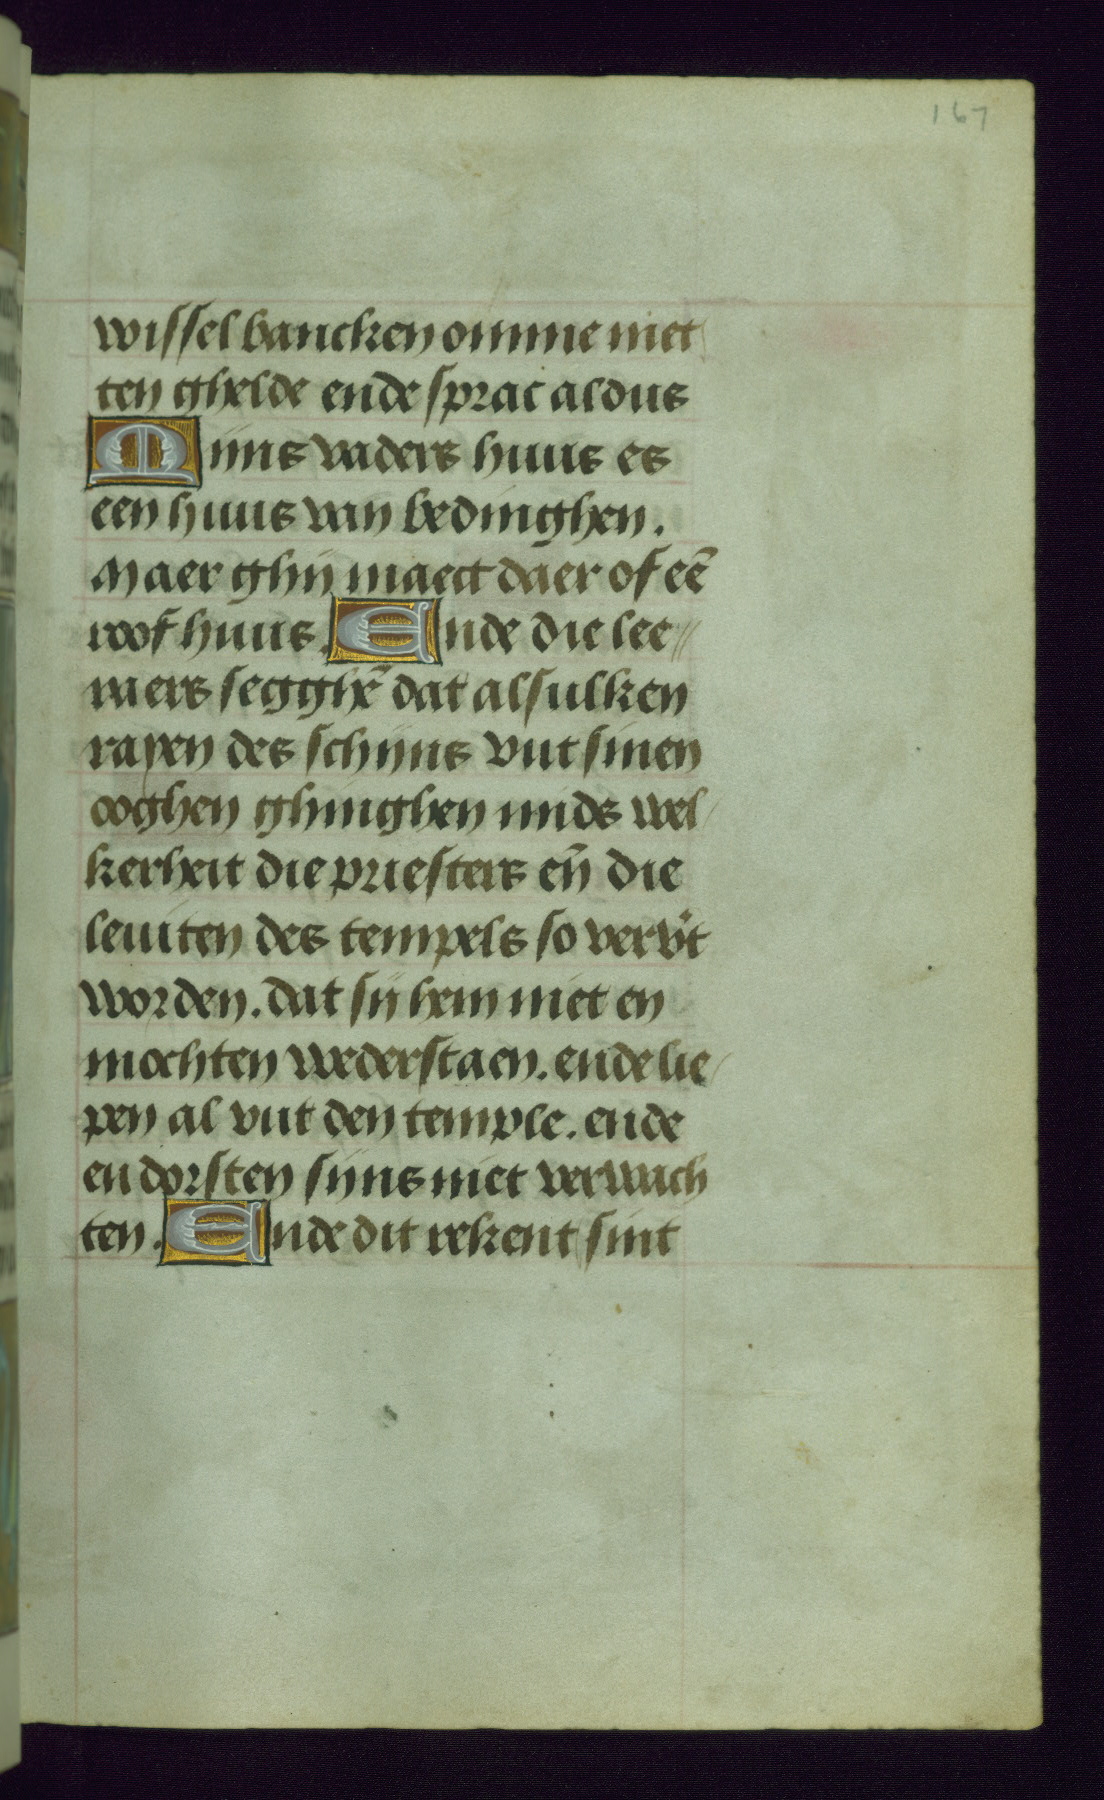 167
wissel bancken omme met
ten ghelde ende sprac aldus
Mijns vaders huus es
een huus van bedinghen.
Maer ghij maect daer of eē
roof huus. Ende die lee//
raers segghē dat alsulken
rayen des schijns vut sinen
ooghen ghinghen mids wel/
kerheit die priesters eñ die
leuiten des tempels so verv't
worden. dat sij hem niet en
mochten wederstaen. ende lie/
pen al vut den temple. ende
en dorsten sijns niet verwach
ten. Ende dit rekent sint